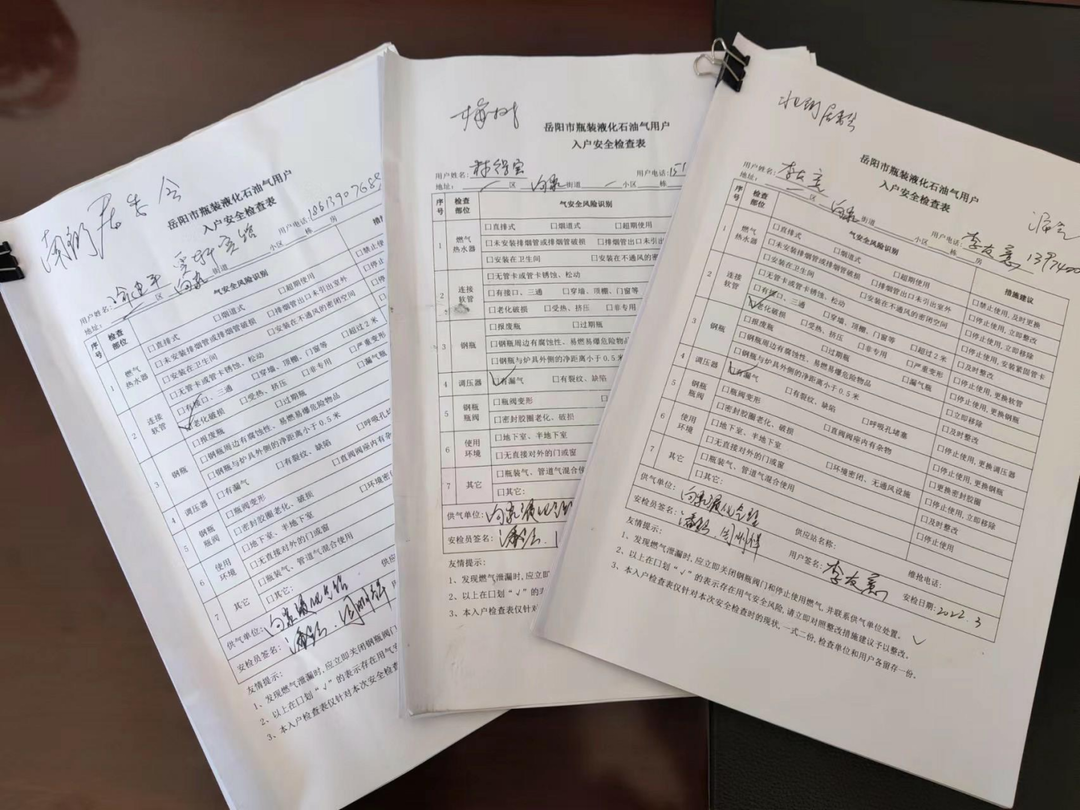 岳阳市瓶装液化石油气用户
入户安全检查表
用户姓名: 用户电话
地址: 区 街道 小区 栋 房
序号 检查部位 气安全风险识别
1 燃气热水器 口直排式 口烟道式 口超期使用
口未安装排烟管或排烟管破损 口排烟管出口未引出室外
口安装在卫生间 口安装在不通风的密闭空间
2 连接软管 口无管卡或管卡锈蚀、松动 口超过2米
口有接口、三通 口穿墙、顶棚、门窗等 口严重变形
口老化破损 口受热、挤压 口非专用
3 钢瓶 口报废瓶 口过期瓶
口钢瓶周边有腐蚀性、易燃易爆危险物品
口钢瓶与炉具外侧的净距离小于0.5米
4 调压器 口有漏气 口有裂纹、缺陷
5 钢瓶瓶阀 口瓶阀变形
口密封胶圈老化、破损
6 使用环境 口地下室、半地下室
口无直接对外的门或窗
7 其它 口瓶装气、管道气混合使用
口其它:
供气单位:
安检员签名:
友情提示:
1、发现燃气泄漏时,应立即关闭钢瓶阀门
2、以上在口划“√”的表示存在用气
3、本入户检查表仅针对本次安全检查
梅树
岳阳市瓶装液化石油气用户
入户安全检查表
用户姓名: 用户电话:
地址: 区 街道 小区
序号 检查部位 气安全风险识别
1 燃气热水器 口直排式 口烟道式 口超期使用
口未安装排烟管或排烟管破损 口排烟管出口未引
口安装在卫生间 口安装在不通风的密
2 连接软管 口无管卡或管卡锈蚀、松动
口有接口、三通 口穿墙、顶棚、门窗等
口老化破损 口受热、挤压 口非专用
3 钢瓶 口报废瓶 口过期瓶
口钢瓶周边有腐蚀性、易燃易爆危险物品
口钢瓶与炉具外侧的净距离小于0.5米
4 调压器 口有漏气 口有裂纹、缺陷
5 钢瓶瓶阀 口瓶阀变形
口密封胶圈老化、破损
6 使用环境 口地下室、半地下室
口无直接对外的门或窗
7 其它 口瓶装气、管道气混合使用
口其它:
供气单位:
安检员签名:
友情提示:
1、发现燃气泄漏时,应立即
2、以上在口划“√”的表示
3、本入户检查表仅针对
岳阳市瓶装液化石油气用户
入户安全检查表
用户姓名: 用户电话:
地址: 区 街道 小区 栋 房
序号 检查部位 气安全风险识别 措施建议
1 燃气热水器 口直排式 口烟道式 口超期使用 口禁止使用,及时更换
口未安装排烟管或排烟管破损 口排烟管出口未引出室外 口停止使用,立即整改
口安装在卫生间 口安装在不通风的密闭空间 口停止使用,立即移除
2 连接软管 口无管卡或管卡锈蚀、松动 口超过2米 口停止使用,安装紧固管卡
口有接口、三通 口穿墙、顶棚、门窗等 口严重变形 口及时整改
口老化破损 口受热、挤压 口非专用 口停止使用,更换软管
3 钢瓶 口报废瓶 口过期瓶 口漏气瓶 口停止使用,更换钢瓶
口钢瓶周边有腐蚀性、易燃易爆危险物品 口立即移除
口钢瓶与炉具外侧的净距离小于0.5米 口及时整改
4 调压器 口有漏气 口有裂纹、缺陷 口呼吸孔堵塞 口停止使用,更换调压器
5 钢瓶瓶阀 口瓶阀变形 口直阀阀座内有杂物 口停止使用,更换钢瓶
口密封胶圈老化、破损 口更换密封胶圈
6 使用环境 口地下室、半地下室 口环境密闭、无通风设施 口停止使用,立即移除
口无直接对外的门或窗 口及时整改
7 其它 口瓶装气、管道气混合使用 口停止使用
口其它:
供气单位: 供应站名称: 维抢电话:
安检员签名: 用户签名: 李友意 安检日期: 2022.3
友情提示:
1、发现燃气泄漏时,应立即关闭钢瓶阀门和停止使用燃气,并联系供气单位处置。
2、以上在口划“√”的表示存在用气安全风险,请立即对照整改措施建议予以整改。
3、本入户检查表仅针对本次安全检查时的现状,一式二份,检查单位和用户各留存一份。